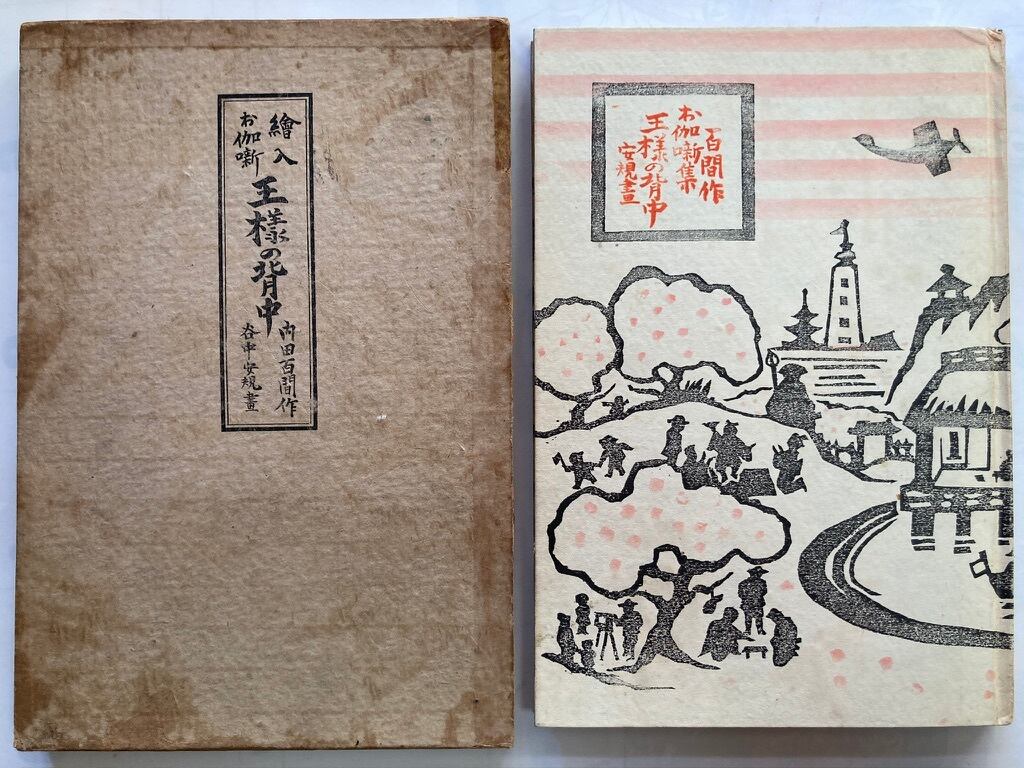 繪入
お伽噺
王樣の背中
内田百間作
谷中安規畫
百間作
お伽噺集
王樣の背中
安規畫